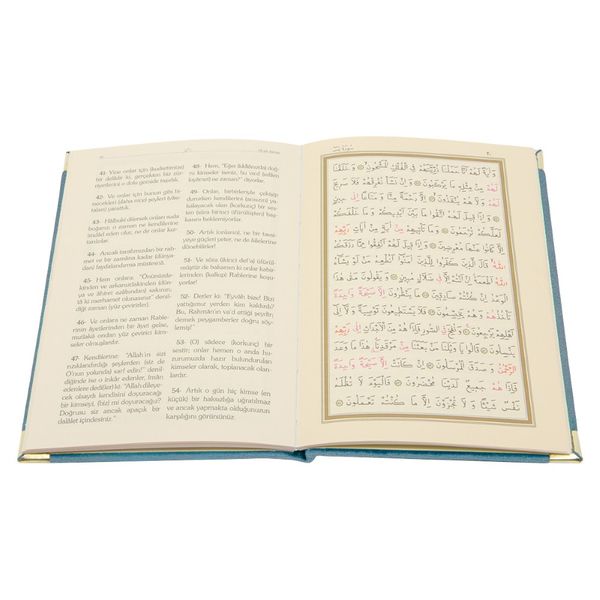 41- Yine onlar için (kudretimize)
bir delildir ki, gerçekten biz zür-
riyetlerini o dolu gemide taşıdık.
42- Ve onlar için bunun gibi bi-
necekleri (daha nice) şeyleri (vâsı-
taları) yarattık.
43- Hâlbuki dilersek onları suda
boğarız; o zaman ne kendilerine
imdâd eden olur, ne de onlar kur-
tarılırlar.
44- Ancak tarafımızdan bir rah-
met ve bir zamâna kadar (dünya-
dan) faydalandırma müstesnâ.
45- Hem onlara: "Önünüzde-
kinden ve arkanızdakinden (dün-
ya ve âhiret azâbından) sakının;
tâ ki merhamet olunasınız" denil-
diği zaman (yüz çevirirler).
46- Ve onlara ne zaman Rable-
rinin âyetlerinden bir âyet gelse,
mutlaka ondan yüz çevirici kim-
seler olmuşlardır.
47- Kendilerine: "Allah'ın sizi
rızıklandırdığı şeylerden (siz de
O'nun yolunda) sarf edin!" denildi-
ğinde ise o inkâr edenler, îmân
edenlere dediler ki: "Allah dileye-
cek olsaydı kendisini doyuracağı
bir kimseyi, (biz) mi doyuracağız?
Doğrusu siz ancak apaçık bir
dalâlet içindesiniz."
48- Hem, "Eğer (iddiânızda) doğ-
ru kimseler iseniz, bu vaad (edilen
kıyâmet) ne zaman?" diyorlar.
49- Onlar, birbirleriyle çekişip
dururlarken (kendilerini) ansızın ya-
kalayacak olan (korkunç) bir ses-
den (sûra birinci üfürülüşten) baş-
kasını beklemiyorlar.
50- Artık (onlar) ne bir tavsi-
yeye güçleri yeter, ne de âilelerine
dönebilirler!
51- Ve sûra (ikinci def'a) üfürül-
müştür de bakarsın ki onlar kabir-
lerinden (kalkıp) Rablerine koşu-
yorlar.
52- Derler ki: "Eyvâh bize! Bizi
yattığımız yerden kim kaldırdı?
Bu, Rahmân'ın va'd ettiği şeydir;
demek peygamberler doğru söyle-
miş!"
53- (O) sâdece (korkunç) bir
sestir; onlar hemen o anda hu-
zurumuzda hazır bulundurulan
kimseler olarak, toplanacak olan-
lardır.
54- Artık o gün hiç kimse (en
küçük) bir haksızlığa uğratılmaz
ve ancak yapmakta olduğunuzun
karşılığını görürsünüz.
وَاٰيَةٌ لَهُمْ اَنَّا حَمَلْنَا ذُرِّيَّتَهُمْ فِي الْفُلْكِ الْمَشْحُونِ ۞ وَخَلَقْنَا
لَهُمْ مِنْ مِثْلِهِ مَا يَرْكَبُونَ ۞ وَاِنْ نَشَأْ نُغْرِقْهُمْ فَلَا صَرِيخَ
لَهُمْ وَلَا هُمْ يُنْقَذُونَ ۞ اِلَّا رَحْمَةً مِنَّا وَمَتَاعًا اِلٰى حِينٍ
۞ وَاِذَا قِيلَ لَهُمُ اتَّقُوا مَا بَيْنَ اَيْدِيكُمْ وَمَا خَلْفَكُمْ
لَعَلَّكُمْ تُرْحَمُونَ ۞ وَمَا تَأْتِيهِمْ مِنْ اٰيَةٍ مِنْ اٰيَاتِ رَبِّهِمْ
اِلَّا كَانُوا عَنْهَا مُعْرِضِينَ ۞ وَاِذَا قِيلَ لَهُمْ اَنْفِقُوا مِمَّا رَزَقَكُمُ
اللّٰهُ قَالَ الَّذِينَ كَفَرُوا لِلَّذِينَ اٰمَنُوا اَنُطْعِمُ مَنْ لَوْ يَشَاءُ
اللّٰهُ اَطْعَمَهُ اِنْ اَنْتُمْ اِلَّا فِي ضَلَالٍ مُبِينٍ ۞ وَيَقُولُونَ مَتٰى هٰذَا
الْوَعْدُ اِنْ كُنْتُمْ صَادِقِينَ ۞ مَا يَنْظُرُونَ اِلَّا صَيْحَةً وَاحِدَةً
تَأْخُذُهُمْ وَهُمْ يَخِصِّمُونَ ۞ فَلَا يَسْتَطِيعُونَ تَوْصِيَةً وَلَا اِلٰى
اَهْلِهِمْ يَرْجِعُونَ ۞ وَنُفِخَ فِي الصُّورِ فَاِذَا هُمْ مِنَ الْاَجْدَاثِ اِلٰى رَبِّهِمْ
يَنْسِلُونَ ۞ قَالُوا يَا وَيْلَنَا مَنْ بَعَثَنَا مِنْ مَرْقَدِنَا هٰذَا مَا وَعَدَ
الرَّحْمٰنُ وَصَدَقَ الْمُرْسَلُونَ ۞ اِنْ كَانَتْ اِلَّا صَيْحَةً وَاحِدَةً
فَاِذَا هُمْ جَمِيعٌ لَدَيْنَا مُحْضَرُونَ ۞ فَالْيَوْمَ لَا تُظْلَمُ
نَفْسٌ شَيْئًا وَلَا تُجْزَوْنَ اِلَّا مَا كُنْتُمْ تَعْمَلُونَ ۞